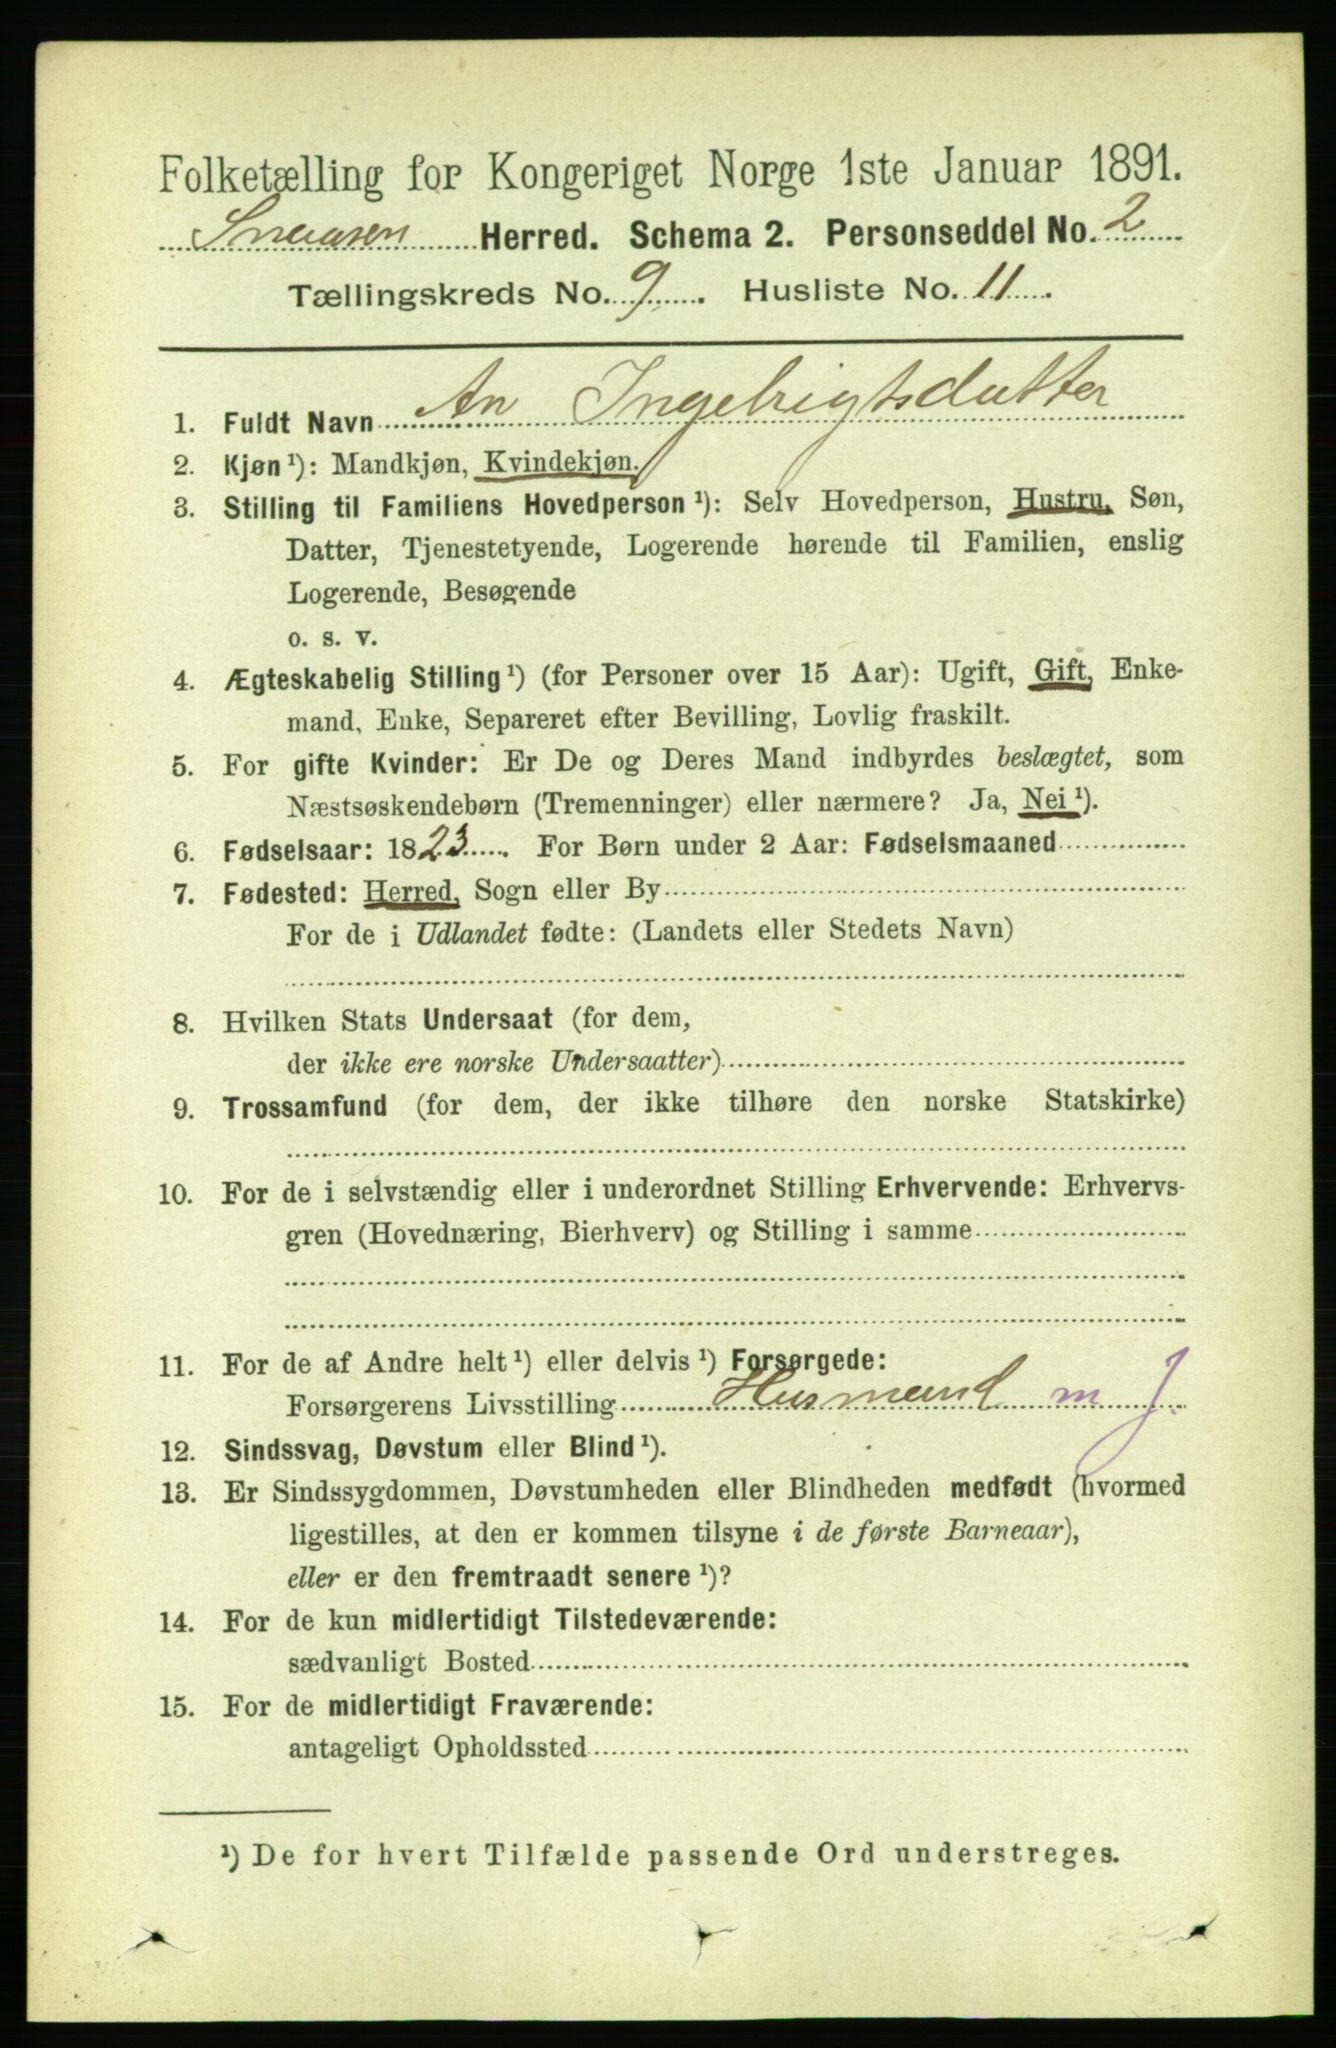 Folketælling for Kongeriget Norge 1ste Januar 1891.
Snaasen Herred. Schema 2. Personseddel No. 2
Tællingskreds No. 9. Husliste No. 11.
1. Fuldt Navn An Ingebrigtsdatter
2. Kjøn ¹): Mandkjøn, Kvindekjøn.
3. Stilling til Familiens Hovedperson ¹): Selv Hovedperson, Hustru, Søn,
Datter, Tjenestetyende, Logerende hørende til Familien, enslig
Logerende, Besøgende
o. s. v.
4. Ægteskabelig Stilling ¹) (for Personer over 15 Aar): Ugift, Gift, Enke-
mand, Enke, Separeret efter Bevilling, Lovlig fraskilt.
5. For gifte Kvinder: Er De og Deres Mand indbyrdes beslægtet, som
Næstsøskendebørn (Tremenninger) eller nærmere? Ja, Nei ¹).
6. Fødselsaar: 1823. For Børn under 2 Aar: Fødselsmaaned
7. Fødested: Herred, Sogn eller By
For de i Udlandet fødte: (Landets eller Stedets Navn)
8. Hvilken Stats Undersaat (for dem,
der ikke ere norske Undersaatter)
9. Trossamfund (for dem, der ikke tilhøre den norske Statskirke)
10. For de i selvstændig eller i underordnet Stilling Erhvervende: Erhvervs-
gren (Hovednæring, Bierhverv) og Stilling i samme
11. For de af Andre helt ¹) eller delvis ¹) Forsørgede:
Forsørgerens Livsstilling Husmand m J.
12. Sindssvag, Døvstum eller Blind ¹).
13. Er Sindssygdommen, Døvstumheden eller Blindheden medfødt (hvormed
ligestilles, at den er kommen tilsyne i de første Barneaar),
eller er den fremtraadt senere ¹)?
14. For de kun midlertidigt Tilstedeværende:
sædvanligt Bosted
15. For de midlertidigt Fraværende:
antageligt Opholdssted
¹) De for hvert Tilfælde passende Ord understreges.